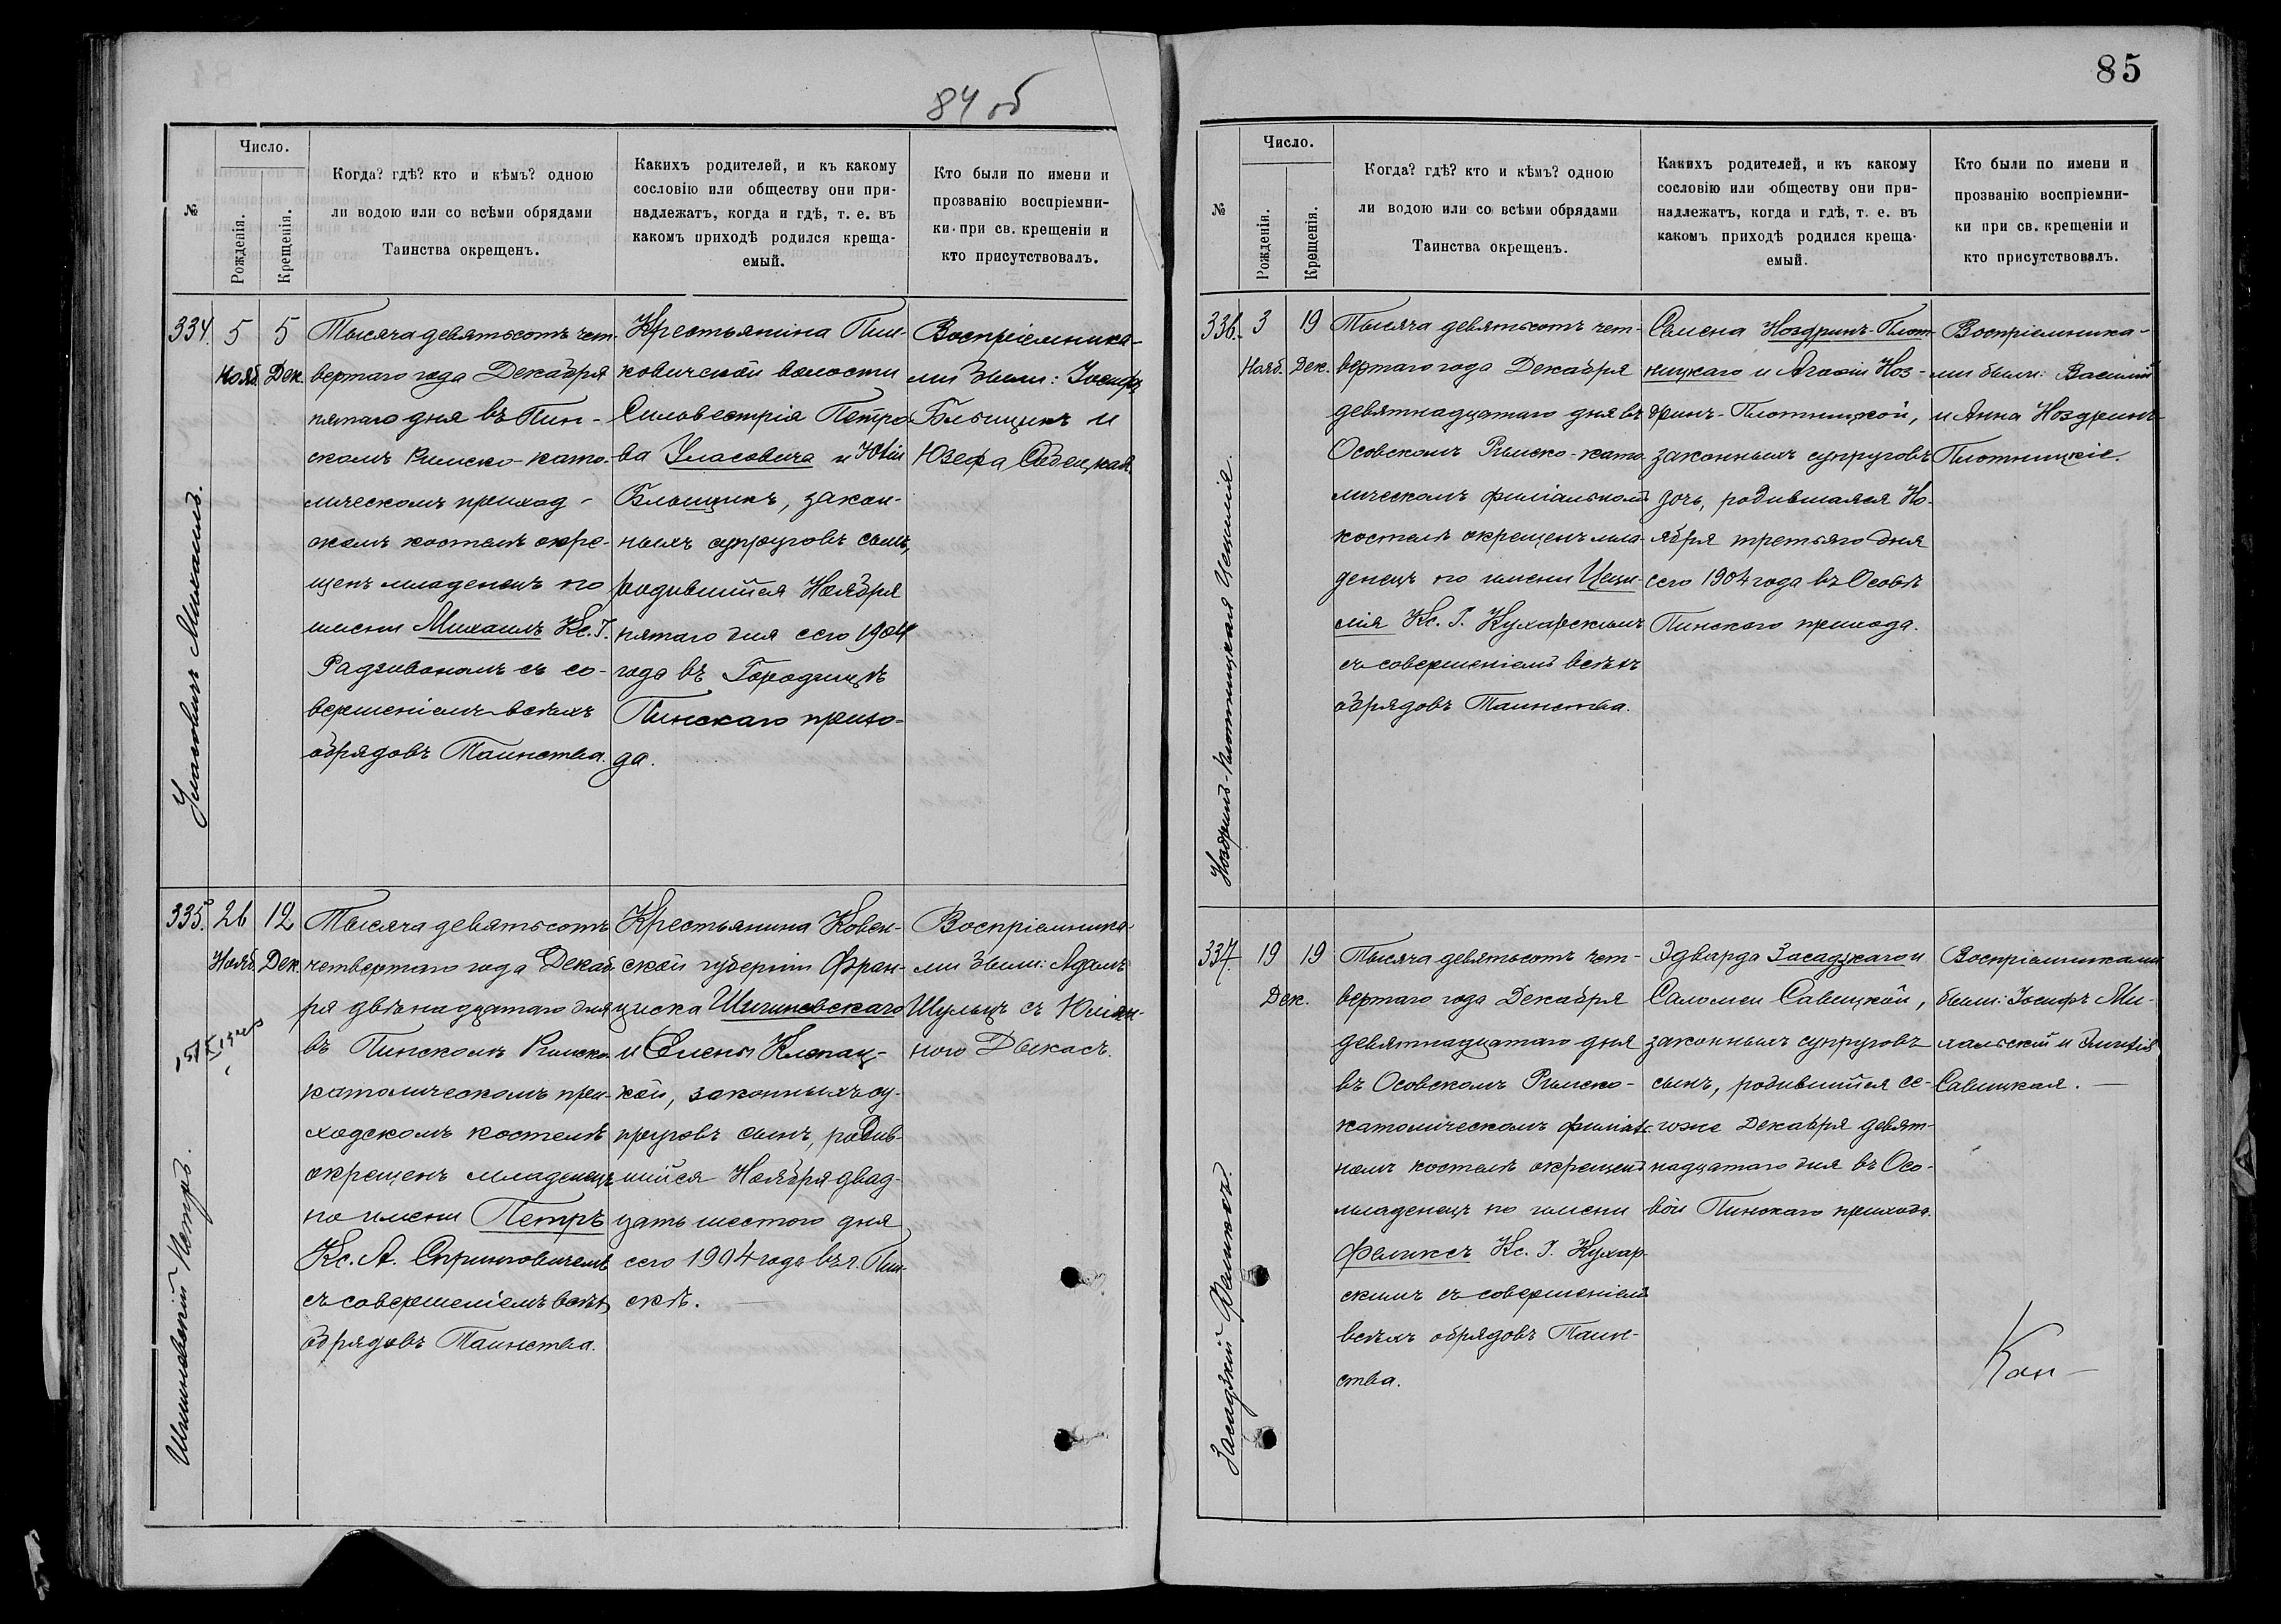 84 об
№
Число.
Рожденія.
Крещенія.
Когда? гдѣ? кто и кѣмъ? одною
ли водою или со всѣми обрядами
Таинства окрещенъ.
Какихъ родителей, и къ какому
сословію или обществу они при-
надлежатъ, когда и гдѣ, т. е. въ
какомъ приходѣ родился креща-
емый.
Кто были по имени и
прозванію воспріемни-
ки при св. крещеніи и
кто присутствовалъ.
334.
Уласовичъ Михаилъ.
5
Нояб.
5
Дек.
Тысяча девятьсотъ чет-
вертаго года Декабря
пятаго дня въ Пин-
скомъ Римско-като-
лическомъ приход-
скомъ костелѣ окре-
щенъ младенецъ по
имени Михаилъ Кс. І.
Радзивономъ съ со-
вершеніемъ всѣхъ
обрядовъ Таинства.
Крестьянина Пин-
ковичской волости
Сильвестрія Петро-
ва Уласовича и
закон-
ныхъ супруговъ сынъ,
родившійся Ноября
пятаго дня сего 1904
года въ Городищѣ
Пинскаго прихо-
да.
Воспріемника-
ми были: Іосифъ
и
Юзефа
335.
Шишновскій Петръ.
26
Нояб.
12
Дек.
Тысяча девятьсотъ
четвертаго года Декаб-
ря двѣнадцатаго дня
въ Пинскомъ Римско-
католическомъ при-
ходскомъ костелѣ
окрещенъ младенецъ
по имени Петръ
Кс. А. Спринговичемъ
съ совершеніемъ всѣхъ
обрядовъ Таинства.
Крестьянина Ковен-
ской губерніи Фран-
циска
и Елены Клепац-
кой, законныхъ су-
пруговъ сынъ, родив-
шійся Ноября двад-
цать шестого дня
сего 1904 года въ г. Пин-
скѣ.
Воспріемника-
ми были: Адамъ
Шульцъ съ Юліан-
ною
85
№
Число.
Рожденія.
Крещенія.
Когда? гдѣ? кто и кѣмъ? одною
ли водою или со всѣми обрядами
Таинства окрещенъ.
Какихъ родителей, и къ какому
сословію или обществу они при-
надлежатъ, когда и гдѣ, т. е. въ
какомъ приходѣ родился креща-
емый.
Кто были по имени и
прозванію воспріемни-
ки при св. крещеніи и
кто присутствовалъ.
336.
Ноздринъ-Плотницкая Цецилія.
3
Нояб.
19
Дек.
Тысяча девятьсотъ чет-
вертаго года Декабря
девятнадцатаго дня въ
Осовскомъ Римско-като-
лическомъ филіальномъ
костелѣ окрещенъ мла-
денецъ по имени Цеци-
лія Кс. І. Кухарскимъ
съ совершеніемъ всѣхъ
обрядовъ Таинства.
Семена Ноздринъ-Плот-
ницкаго и Агафіи Ноз-
дринъ-Плотницкой,
законныхъ супруговъ
дочь, родившаяся Но-
ября третьяго дня
сего 1904 года въ Особѣ
Пинскаго прихода.
Воспріемника-
ми были: Василій
и Анна Ноздринъ-
Плотницкіе.
337.
Засадзкій Феликсъ.
19
Дек.
19
Тысяча девятьсотъ чет-
вертаго года Декабря
девятнадцатаго дня
въ Осовскомъ Римско-
католическомъ филіаль-
номъ костелѣ окрещенъ
младенецъ по имени
Феликсъ Кс. І. Кухар-
скимъ съ совершеніемъ
всѣхъ обрядовъ Таин-
ства.
Эдварда Засадзкаго и
Саломеи Савицкой,
законныхъ супруговъ
сынъ, родившійся се-
гоже Декабря девят-
надцатаго дня въ Осо-
вой Пинскаго прихода.
Воспріемниками
были: Іосифъ Ми-
хальскій и Эмилія
Савицкая.